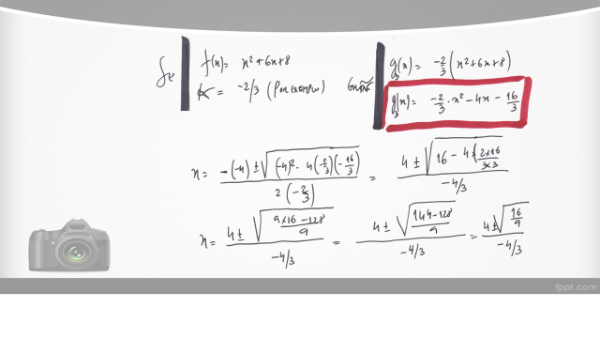 Se f(x) = x² + 6x + 8
K = -2/3 (Por exemplo)
g₃(x) = -2/3 (x² + 6x + 8)
g₃(x) = -2/3 · x² - 4x - 16/3
x = -(-4) ± √((-4)² - 4(-2/3)(-16/3)) / 2(-2/3) = 4 ± √(16 - 4(2×16/3×3)) / -4/3
x = 4 ± √(9×16 - 128/9) / -4/3 = 4 ± √(144 - 128/9) / -4/3 = 4 ± √(16/9) / -4/3
fppt.com